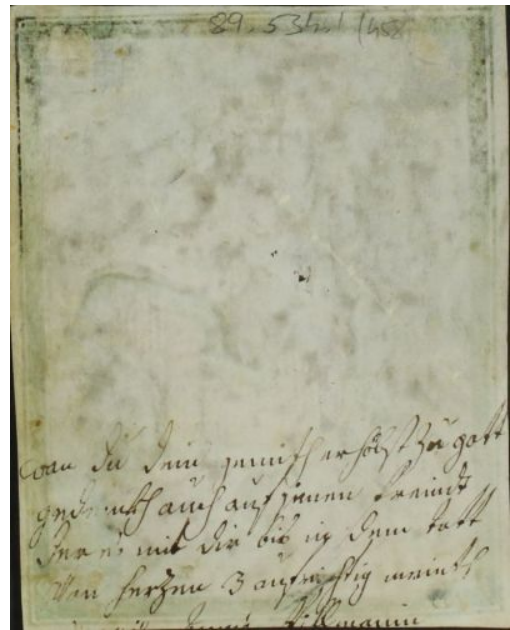 89. 53
wan du dein gemith erhöbst zu gott
gedenckh auch auf jenen freindt
der es mit dir bis in dem tott
Von herzen aufrichtig meint